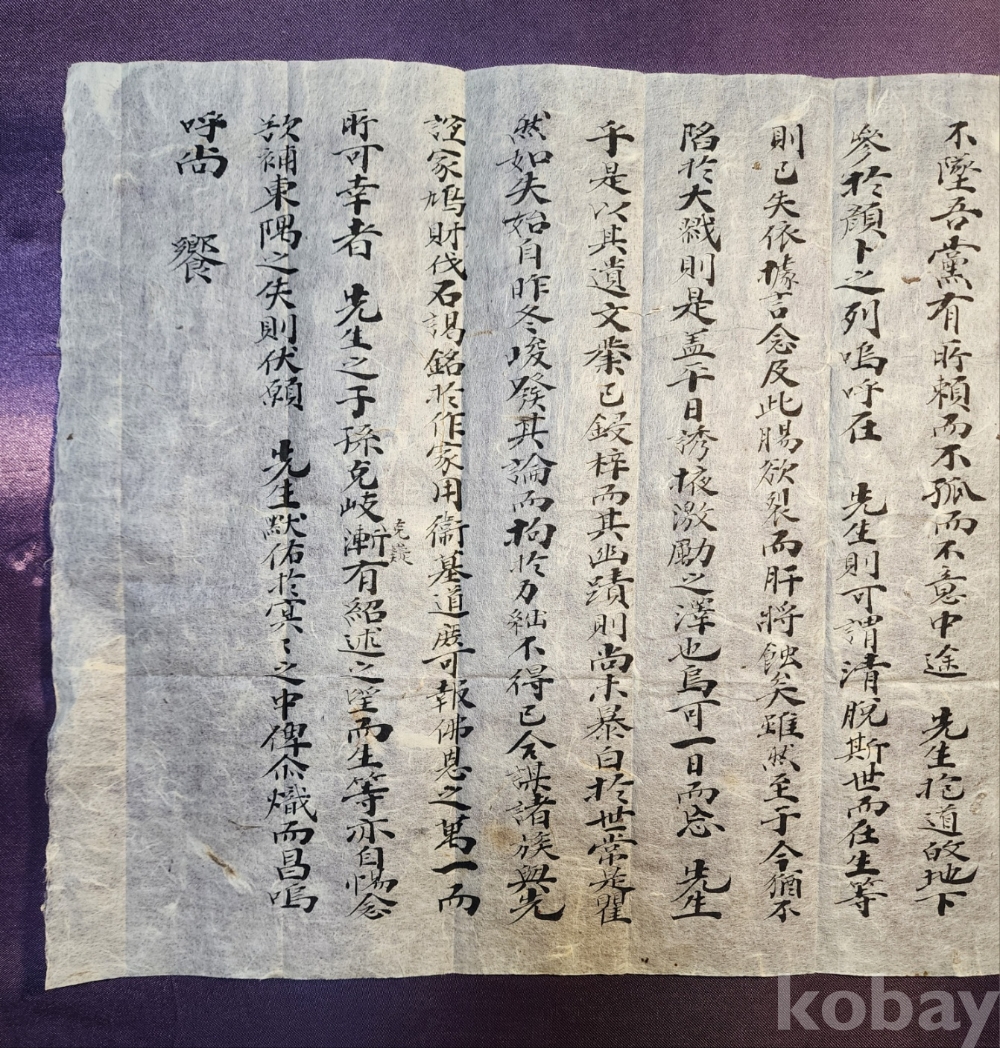 不墜吾黨有所賴而不孤而不意中途 先生抱道的地下
參於顔卜之列嗚呼在 先生則可謂清脫斯世而在生等
則已失依據言念及此膓欲裂而肝將蝕矣雖然至于今猶不
陷於大戮則是盖平日誘掖激勵之澤也烏可一日而忘 先生
乎是以其遺文業已鋟梓而其幽蹟則尚未暴白於世常是瞿
然如失始自昨冬峻發其論而拘於力絀不得已合謀諸族與先
誼家鳩財伐石謁銘於作家用衛墓道庶可報佛恩之萬一而
所可幸者 先生之子孫克岐克嶷漸有紹述之望而生等亦自惕念
欲補東隅之失則伏願 先生默佑於冥〻之中俾爾熾而昌嗚
呼尚 饗
kobay